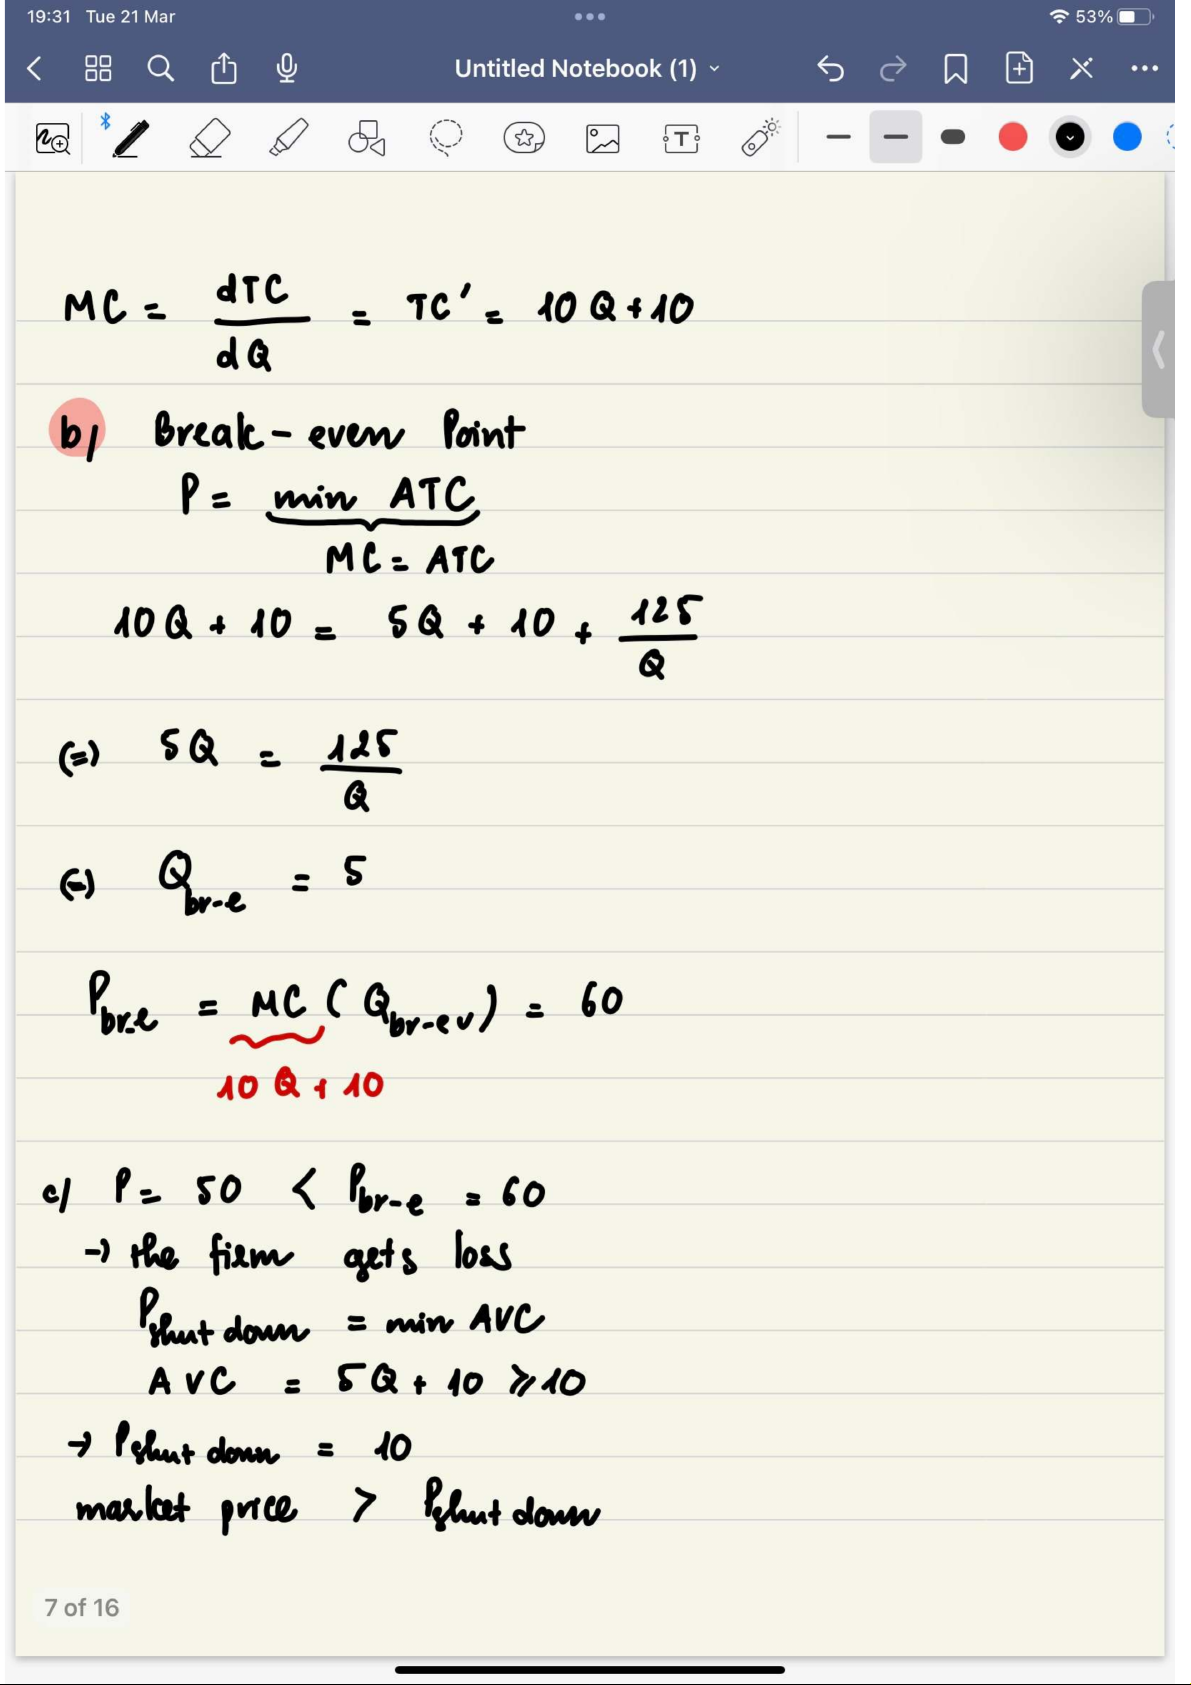 19:31 Tue 21 Mar 53%
Untitled Notebook (1)
MC = dTC/dQ = TC' = 10Q + 10
b/ Break-even Point
P = min ATC
MC = ATC
10Q + 10 = 5Q + 10 + 125/Q
(=) 5Q = 125/Q
(=) Q br-e = 5
P br-e = MC (Q br-ev) = 60
10Q + 10
c/ P = 50 < P br-e = 60
→ the firm gets loss
P shut down = min AVC
AVC = 5Q + 10 ⩾ 10
→ P shut down = 10
market price > P shut down
7 of 16